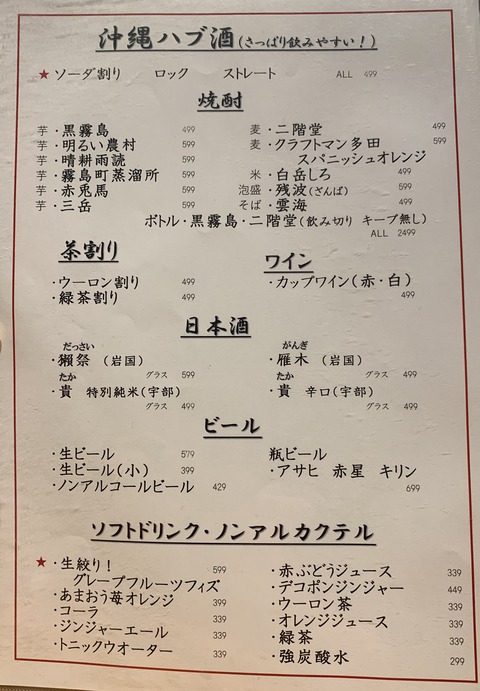 沖縄ハブ酒(さっぱり飲みやすい!)
★ ソーダ割り ロック ストレート ALL 499
焼酎
芋・黒霧島 499
芋・明るい農村 599
芋・晴耕雨読 599
芋・霧島町蒸溜所 599
芋・赤兎馬 599
芋・三岳 599
麦・二階堂 499
麦・クラフトマン多田 599
スパニッシュオレンジ
米・白岳しろ 499
泡盛・残波(ざんぱ) 599
そば・雲海 499
ボトル・黒霧島・二階堂(飲み切り キープ無し)
ALL 2499
茶割り
・ウーロン割り 499
・緑茶割り 499
ワイン
・カップワイン(赤・白)
499
日本酒
だっさい
・獺祭 (岩国)
グラス 599
たか
・貴 特別純米(宇部)
グラス 499
がんぎ
・雁木 (岩国)
グラス 499
たか
・貴 辛口(宇部)
グラス 499
ビール
・生ビール 579
・生ビール(小) 399
・ノンアルコールビール 429
瓶ビール
・アサヒ 赤星 キリン
699
ソフトドリンク・ノンアルカクテル
★ ・生絞り! 599
グレープフルーツフィズ
・あまおう苺オレンジ 399
・コーラ 339
・ジンジャーエール 339
・トニックウオーター 339
・赤ぶどうジュース 339
・デコポンジンジャー 449
・ウーロン茶 339
・オレンジジュース 339
・緑茶 339
・強炭酸水 299